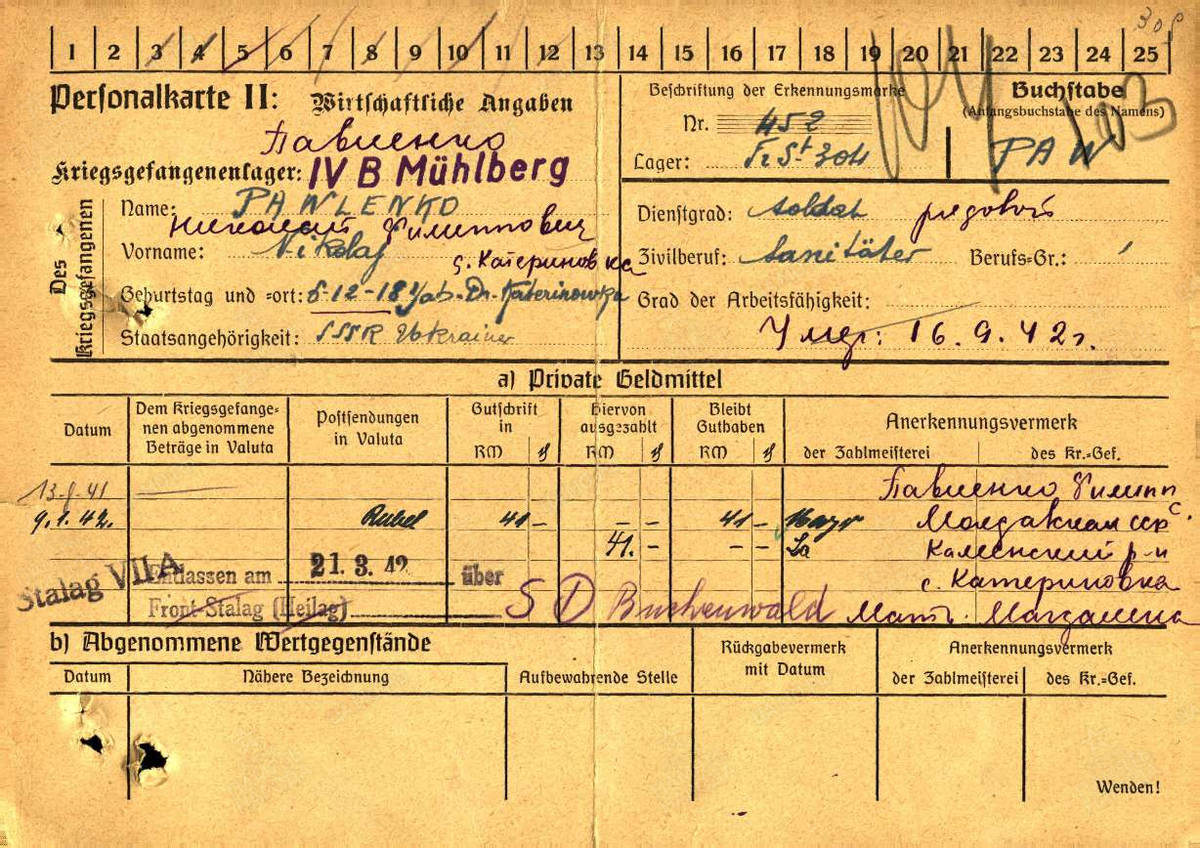 305
1 2 3 4 5 6 7 8 9 10 11 12 13 14 15 16 17 18 19 20 21 22 23 24 25
Personalkarte II: Wirtschaftliche Angaben
Павленко
Kriegsgefangenenlager: IV B Mühlberg
Des Kriegsgefangenen
Name: PAWLENKO
Николай Филиппович
Vorname: Nikolaj
с. Катериновка
Geburtstag und -ort: 5-12-18 Dr. Katerinowka
Staatsangehörigkeit: SSSR Ukrainer
Beschriftung der Erkennungsmarke
Nr. 452
Lager: Fr St 304
Buchstabe
(Anfangsbuchstabe des Namens)
PAW
103
Dienstgrad: Soldat рядовой
Zivilberuf: Sanitäter Berufs-Gr.:
Grad der Arbeitsfähigkeit:
Умер: 16.9.42г.
a) Private Geldmittel
Datum
Dem Kriegsgefange-
nen abgenommene
Beträge in Valuta
Postsendungen
in Valuta
Gutschrift
in
RM ₰
Hiervon
ausgezahlt
RM ₰
Bleibt
Guthaben
RM ₰
Anerkennungsvermerk
der Zahlmeisterei des Kr.-Gef.
Павленко Филипп
9.1.42. Rubel 41 – – – 41 –
Молдавская ССР
41. – – –
Каменский р-н
Stalag VII A
Entlassen am 21.3.42 über
с. Катериновка
Front-Stalag (Heilag) SD Buchenwald
Мать. Магдалена
b) Abgenommene Wertgegenstände
Datum
Nähere Bezeichnung
Aufbewahrende Stelle
Rückgabevermerk
mit Datum
Anerkennungsvermerk
der Zahlmeisterei des Kr.-Gef.
Wenden!